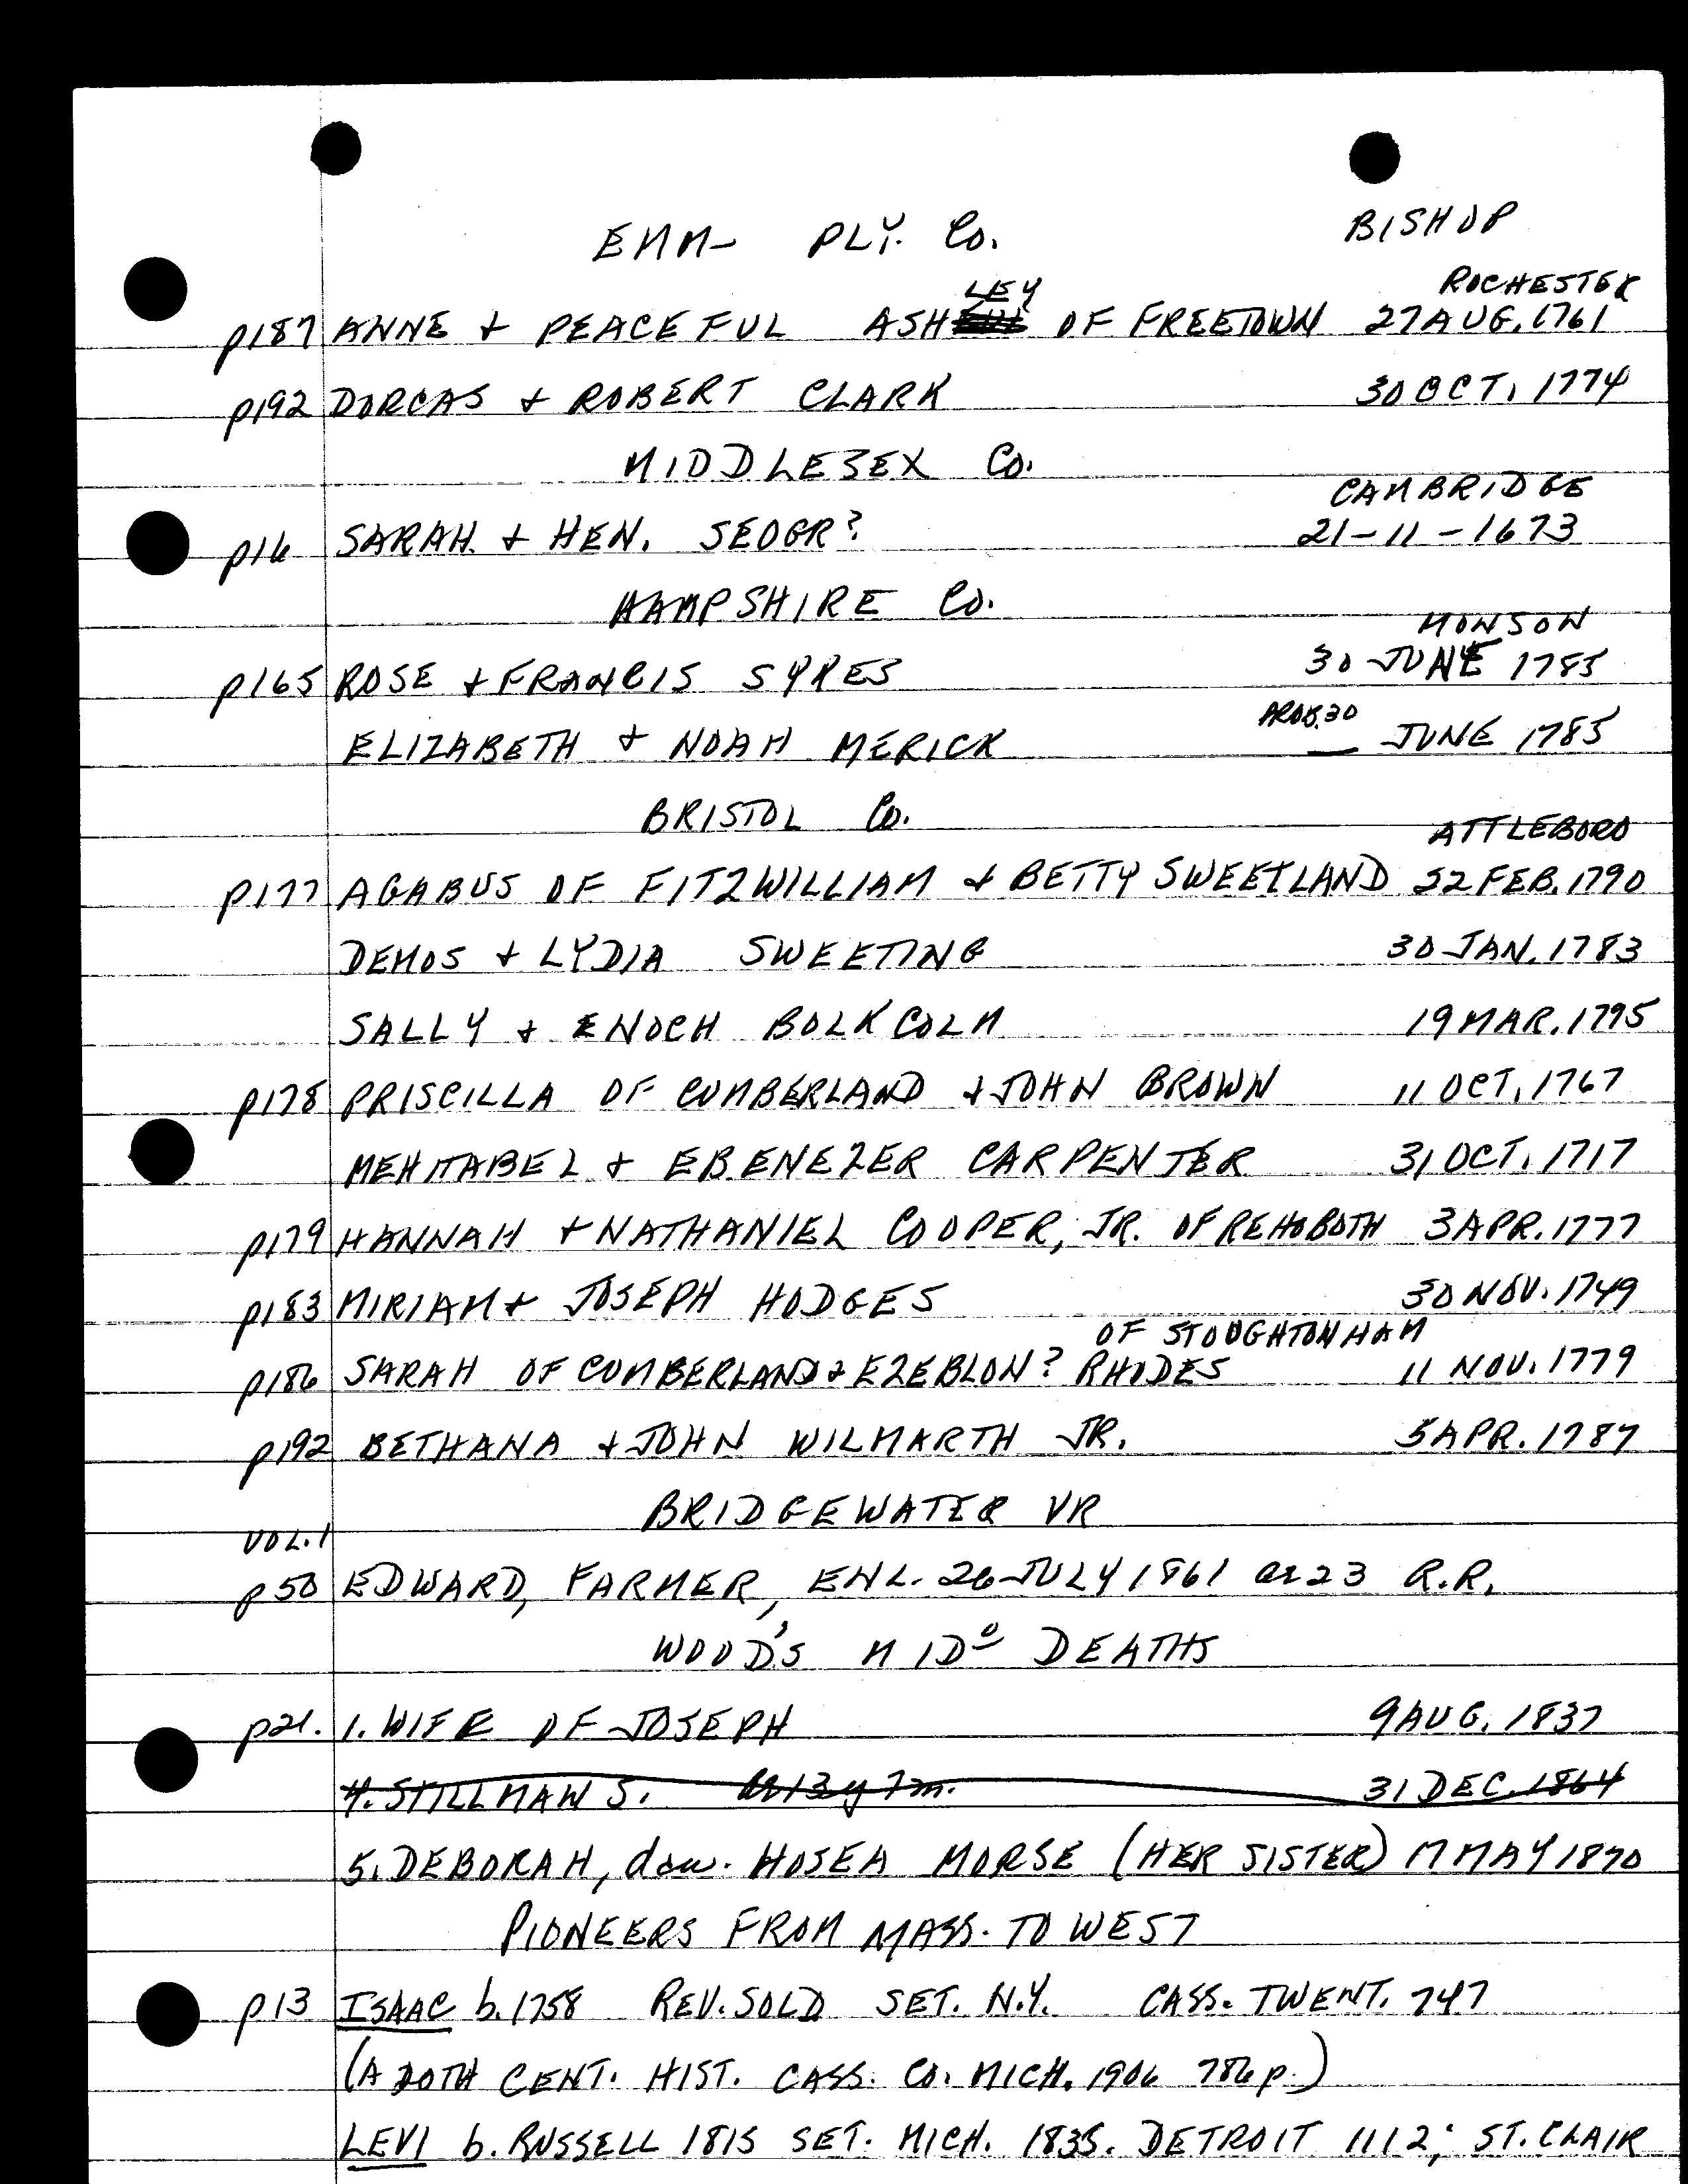 EMM- PLY. Co. BISHOP
ROCHESTER
LEY
p187 ANNE + PEACEFUL ASH OF FREETOWN 27 AUG. 1761
p192 DORCAS + ROBERT CLARK 30 OCT. 1774
MIDDLESEX Co.
CAMBRIDGE
p16 SARAH + HEN. SEOGR? 21-11-1673
HAMPSHIRE Co.
MONSON
p165 ROSE + FRANCIS SYKES 30 JUNE 1785
PROB. 30
ELIZABETH + NOAH MERICK — JUNE 1785
BRISTOL Co.
ATTLEBORO
p177 AGABUS OF FITZWILLIAM + BETTY SWEETLAND 22 FEB. 1790
DEMOS + LYDIA SWEETING 30 JAN. 1783
SALLY + ENOCH BOLKCOLM 19 MAR. 1795
p178 PRISCILLA OF CUMBERLAND + JOHN BROWN 11 OCT. 1767
MEHITABEL + EBENEZER CARPENTER 31 OCT. 1717
p179 HANNAH + NATHANIEL COOPER, JR. OF REHOBOTH 3 APR. 1777
p183 MIRIAM + JOSEPH HODGES 30 NOV. 1749
OF STOUGHTONHAM
p186 SARAH OF CUMBERLAND + EZEBLON? RHODES 11 NOV. 1779
p192 BETHANA + JOHN WILMARTH JR. 5 APR. 1787
BRIDGEWATER VR
VOL. 1
p50 EDWARD, FARMER, ENL. 26 JULY 1861 ae 23 R.R.
WOOD'S MIDº DEATHS
p21. 1. WIFE OF JOSEPH 9 AUG. 1837
4. STILLMAN S. ae 13y 7m. 31 DEC. 1864
5. DEBORAH, dau. HOSEA MORSE (HER SISTER) 17 MAY 1870
PIONEERS FROM MASS. TO WEST
p13 ISAAC b. 1758 REV. SOLD SET. N.Y. CASS. TWENT. 747
(A 20TH CENT. HIST. CASS. CO. MICH. 1906 786p.)
LEVI b. RUSSELL 1815 SET. MICH. 1835. DETROIT 1112; ST. CLAIR